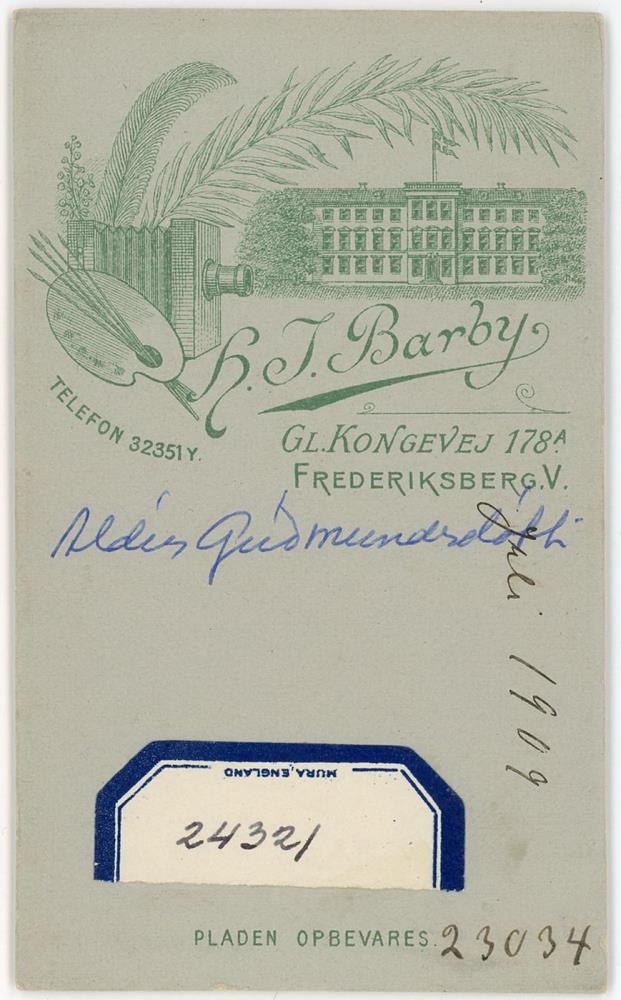 H. J. Barby
TELEFON 32351Y.
GL. KONGEVEJ 178A.
FREDERIKSBERG.V.
Aldís Guðmundsdótti
Juli 1909
MURA, ENGLAND
24321
PLADEN OPBEVARES.
23034